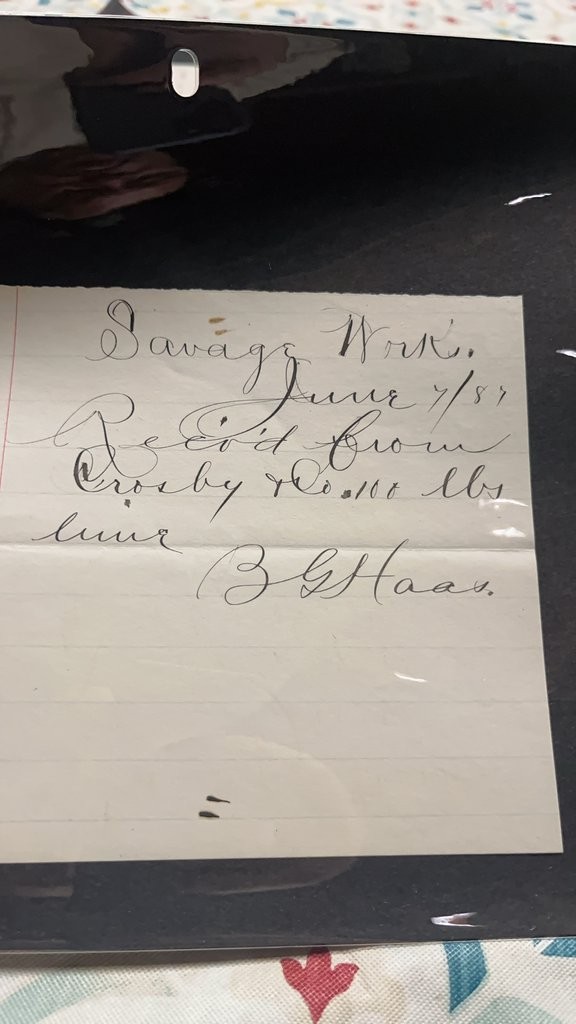 Savage Work.
June 7/87
Rec'd from
Crosby & Co. 100 lbs
lime
B G Haas.